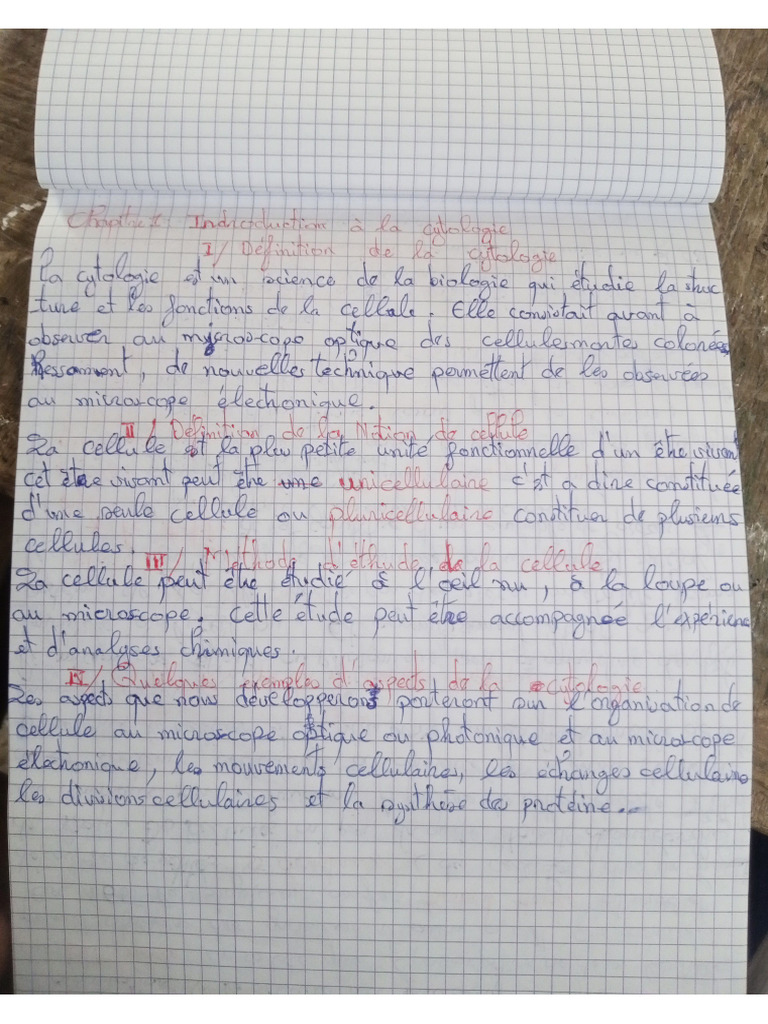 Chapitre I: Indroduction à la cytologie
I/ Définition de la cytologie
La cytologie est un science de la biologie qui étudie la struc
ture et les fonctions de la cellule. Elle consistait avant à
observer au microscope optique des cellules montes colorées
Ressamment, de nouvelles technique permettent de les observées
au microscope électronique.
II / Définition de la Notion de cellule
La cellule est la plus petite unité fonctionnelle d'un être vivant
cet être vivant peut être une unicellulaire c'est a dire constituée
d'une seule cellule ou pluricellulaire constituer de plusieurs
cellules.
III / Methode d'éthude de la cellule
La cellule peut être étudié à l'oeil nu, à la loupe ou
au microscope. Cette étude peut être accompagnée l'expérienc
et d'analyses chimiques.
IV/ Quelques exemples d'aspects de la cytologie
Les aspects que nous developperons porteront sur l'organisation de
cellule au microscope optique ou photonique et au microscope
électronique, les mouvements cellulaires, les échanges cellulaire
les divisions cellulaires et la synthèse de protéine...